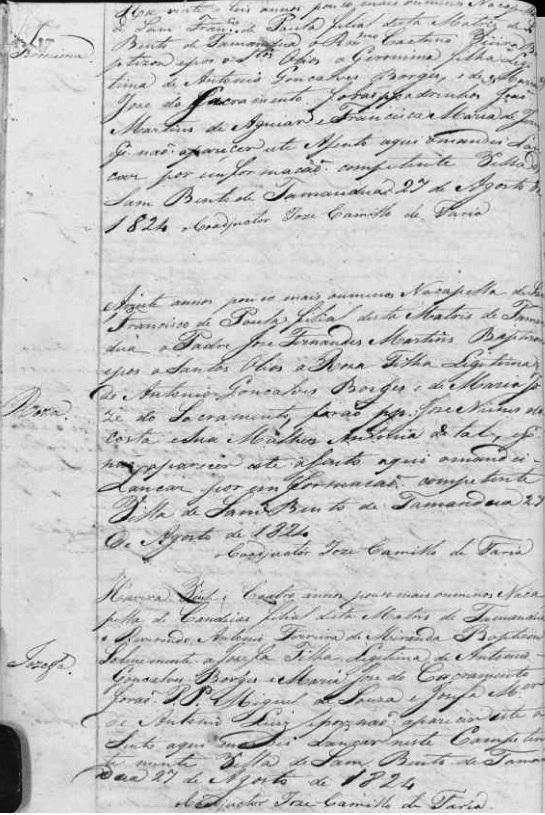 vinte e seis annos pouco mais ou menos Na capella
de Sam Fran.co de Paula filial desta Matris de S.
Bento de Tamandua o R.mo Caetano
Geronima
ptizou e pos os S.tos Olios a Geronima filha legi
tima de Antonio Goncalves Borges, e de Maria
Joze do Sacramento forao padrinhos João
Martins de Aguiar e Francisca Maria de
não aparecer este Asento aqui o mandei Lan
car por imformacaõ competente Villa de
Sam Bento de Tamandua 27 de Agosto de
1824 Coadjuctor Joze Camillo de Faria
vinte annos pouco mais ou menos Na capella de Sam
Francisco de Paula filial desta Matris de Taman
dua o Padre Joze Fernandes Martins Baptizou
e pos os Santos Olios a Roza Filha Legitima
de Antonio Goncalves Borges e de Maria Jo
Roza.
ze do Sacramento, forão pp. Joze Nunes da
Costa e sua Mulher Antonia de tal, e
não aparecer este asento aqui o mandei
Lancar por imformacaõ competente
Villa de Sam Bento de Tamandua 27
de Agosto de 1824
Coadjuctor Joze Camillo de Faria
Havera Vinte e Coatro annos pouco mais ou menos Na ca
pella de Candeias filial desta Matris de Tamandua
o Reverendo Antonio Ferreira de Miranda Baptizou
Jozefa.
Solenemente a Jozefa Filha Legitima de Antonio
Goncalves Borges e Maria Joze do Sacramento
forão P.P. Miguel de Souza e Jozefa
de Antonio Diaz e por não aparecer este a
sento aqui Lançar neste Competen
te mente Villa de Sam Bento de Taman
dua 27 de Agosto de 1824
Coadjuctor Joze Camillo de Faria.